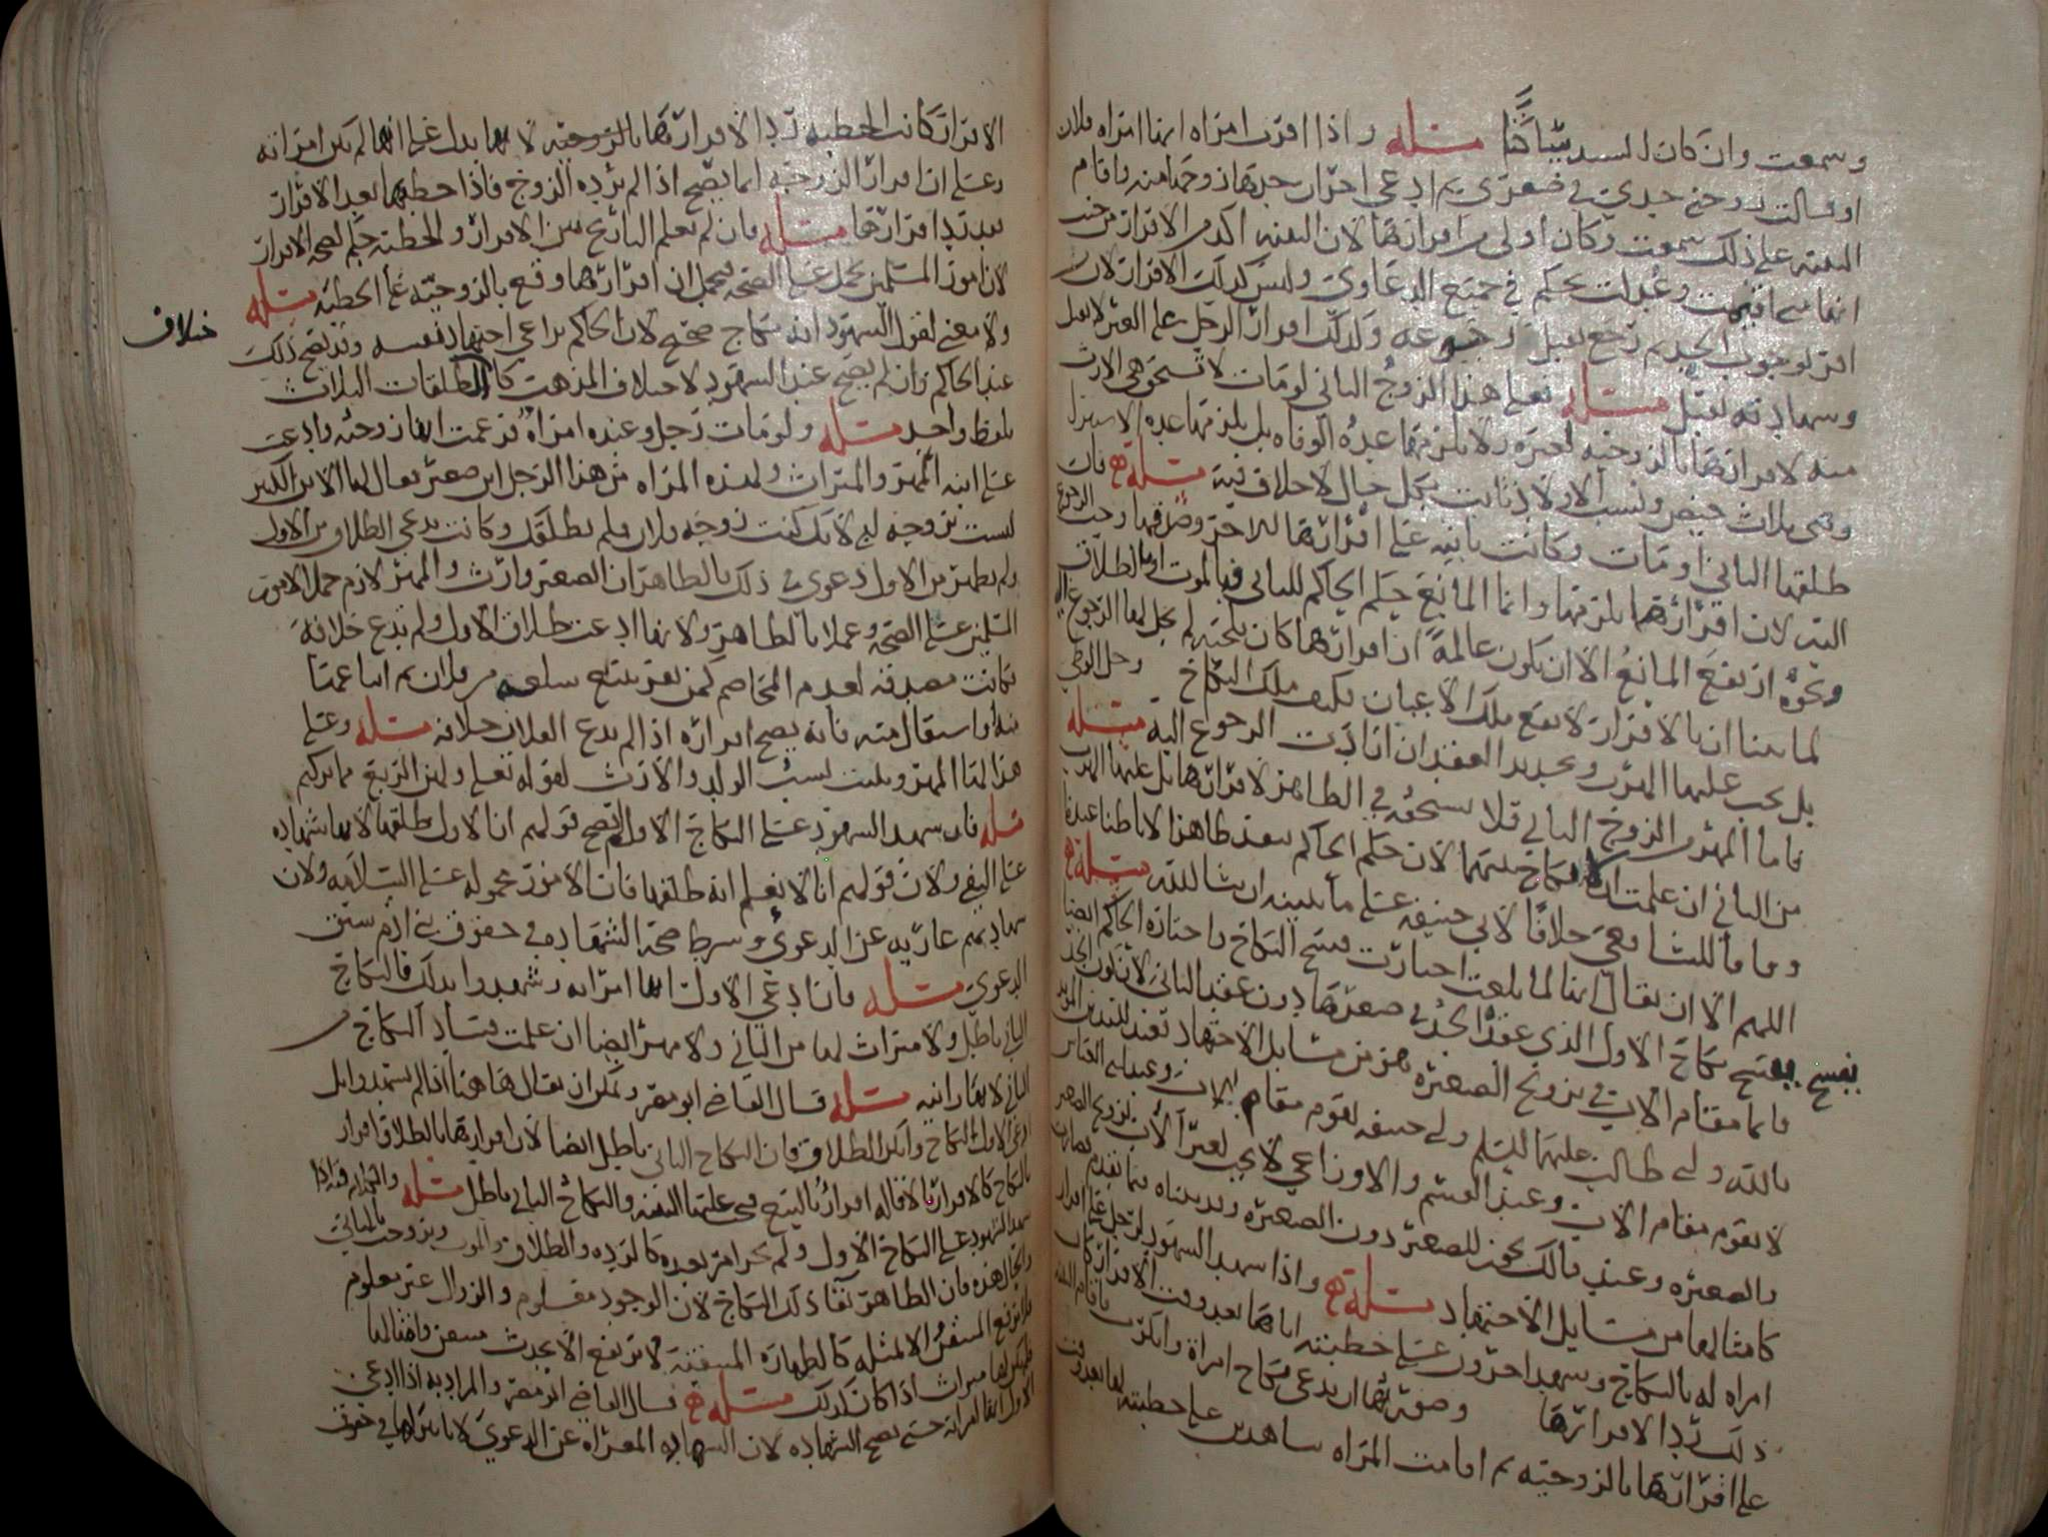 وسمعت وان كان السيد شيا حنا مسئله واذا اقرت امراه انها امراه فلان
او قالت زوجني جدي في صغري ثم ادعى احر ان جدها زوجها منه واقام
البينه على ذلك سمعت وكان اولى من اقرارها لان البينه اكد من الاقرار من حيث
انها متى اقيمت وعدلت يحكم في جميع الدعاوي وليس كذلك الاقرار لان من
اقر لوجوب الحد ثم رجع يقبل رجوعه وكذلك اقرار الرجل على الغير لا يقبل
وشهادته تقبل مسئله فعلى هذا الزوج الثاني لو مات لا تستحق هي الارث
منه لاقرارها بالزوجيه لغيره ولا يلزمها عدة الوفاه بل يلزمها عدة الاستبرا
وهي ثلاث حيض ونسب الاولاد ثابت بكل حال لا خلاف فيه مسئله فان
طلقها الثاني او مات وكانت ثابته على اقرارها للاخر وصدقها وجب الرجوع
اليه لان اقرارها يلزمها وانما المانع حكم الحاكم للثاني فبالموت او بالطلاق
ونحوه ارتفع المانع الا ان تكون عالمة ان اقرارها كان تلجيه لم يحل لها الرجوع اليه
لما بينا ان بالاقرار لا يقع ملك الاعيان فكيف ملك النكاح وحل الوطي
بل يجب عليها الهرب وتجديد العقد ان ارادت الرجوع اليه مسئله
فاما المهر من الزوج الثاني فلا تستحقه في الظاهر لاقرارها بل عليها الهرب
من الثاني ان علمت ان لا نكاح بينهما لان حكم الحاكم ينفذ ظاهرا لا باطنا عندنا
وفاقا للشافعي خلافا لابي حنيفه على ما نبينه ان شا الله مسئله
اللهم الا ان يقال انها لما بلغت اختارت فسخ النكاح واجازه الحاكم ايضا
يفسخ بفسخ نكاح الاول الذي عقد الجد في صغرها دون عقد الثاني لان كون الجد
قائما مقام الاب في تزويج الصغيره هو من مسايل الاجتهاد فعند المويد
بالله وابي طالب عليهما السلم وابي حنيفه يقوم مقام الاب وعند الناصر
لا يقوم مقام الاب وعند القسم والاوزاعي لا يجب لغير الاب تزويج الصغير
والصغيره وعند مالك يجوز للصغير دون الصغيره وقد بيناه فيما تقدم فصارت
كامثالها من مسايل الاجتهاد مسئله واذا شهد الشهود لرجل على اقرار
امراه له بالنكاح وشهد اخرون على خطبته اياها بعد وقت الاقرار كان
ذلك ردا لاقرارها وصورتها ان يدعي نكاح امراة وانكرت فاقام البينه
على اقرارها بالزوجيه ثم اقامت المراه شاهدين على خطبته لها بعد وقت
الاقرار كانت الخطبه ردا لاقرارها بالزوجيه لانها تدل على انها لم تكن امراته
وعلى ان اقرار الزوجيه انما يصح اذا لم يرده الزوج فاذا خطبها بعد الاقرار
فقد رد اقرارها مسئله فان لم يعلم التاريخ بين الاقرار والخطبه حكم لصحه الاقرار
لان امور المسلمين تحمل على الصحه فيحمل ان اقرارها وقع بالزوجيه على الخطبه مسئله
خلاف
ولا معنى لقول الشهود انه نكاح صحيح لان الحاكم يراعي اجتهاد نفسه وقد يصح ذلك
عند الحاكم وان لم يصح عند الشهود لاختلاف المذهب كالطلقات الثلاث
بلفظ واحد مسئله ولو مات رجل وعنده امراه فزعمت انها زوجته وادعت
على ابنه المهر والميراث ولهذه المراه من هذا الرجل ابن صغير فقال لها الابن الكبير
لست بزوجه لابي لانك كنت زوجه فلان ولم يطلقك وكانت تدعي الطلاق من الاول
ولم يظهر من الاول دعوى في ذلك فالظاهر ان الصغير وارث والمهر لازم حملا لامور
المسلمين على الصحه وعملا بالظاهر ولانها ادعت طلاق الاول ولم يدع خلافه
فكانت مصدقه لعدم المخاصم كمن يقر ببيع سلعه من فلان ثم
منه او استقال منه فانه يصح اقراره اذا لم يدع الفلان خلافه مسئله وعلى
هذا لها المهر ويثبت نسب الولد والارث لقوله تعلى ولهن الربع مما تركتم
مسئله فان شهد الشهود على النكاح الاول لم يصح قولهم ان الاول طلقها لانها شهاده
على النفي ولان قولهم انا لا نعلم انه طلقها فان الامور محموله على السلامه ولان
شهادتهم عاريه عن الدعوى وشرط صحه الشهاده في حقوق بني ادم سبق
الدعوى مسئله فان ادعى الاول انها امراته وشهدوا بذلك فالنكاح
الثاني باطل ولا ميراث لها من الثاني ولا مهر ايضا ان علمت فساد النكاح من
الثاني لا نقارانيه مسئله قال القاضي ابو مضر ويمكن ان يقال هاهنا اذا لم يشهدوا بل
ادعى الاول النكاح وانكر الطلاق فان النكاح الثاني باطل ايضا لان اقرارها بالطلاق اقرار
بالنكاح كالاقرار بالاقاله اقرار بالبيع فيجب عليها البينه والنكاح الثاني باطل مسئله
شهد الشهود على النكاح الاول ولم يجر امر بعده كالرده والطلاق والموت وتزوجت بالثاني
والحال هذه فان الظاهر بقا ذلك النكاح لان الوجود معلوم والزوال غير معلوم
فلا يرتفع المتيقن الا بمثله كالطهاره المتيقنه لا ترتفع الا بحدث متيقن وامثالها
فلا يكون لها ميراث اذا كان كذلك مسئله قال القاضي ابو مضر والمراد به اذا ادعى
الاول انها امراته حتى تصح الشهاده لان الشهاده المعراه عن الدعوى لا تاثير لها في حقوق